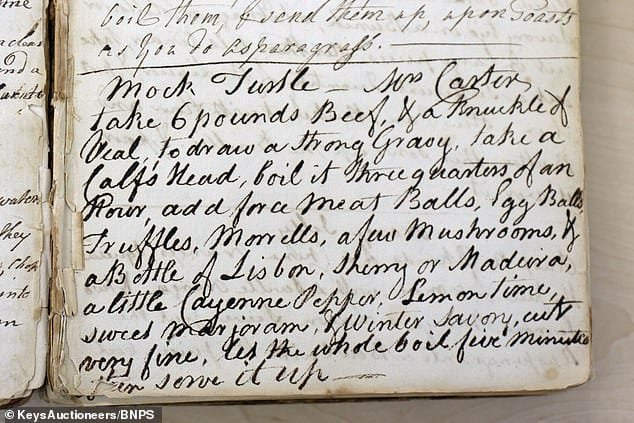 boil them, & send them up, upon Toasts
as You do asparagrass.
Mock Turtle — Mrs Carter
take 6 pounds Beef, & a Knuckle of
Veal, to draw a strong Gravy, take a
Calfs Head, boil it three quarters of an
Hour, add force meat Balls, Egg Balls,
Truffles, Morrells, a few Mushrooms, &
a Bottle of Lisbon, Sherry or Madeira,
a little Cayenne Pepper, Lemon time,
sweet marjoram, & Winter Savory, cut
very fine, let the whole boil five minutes
then serve it up —
© KeysAuctioneers/BNPS